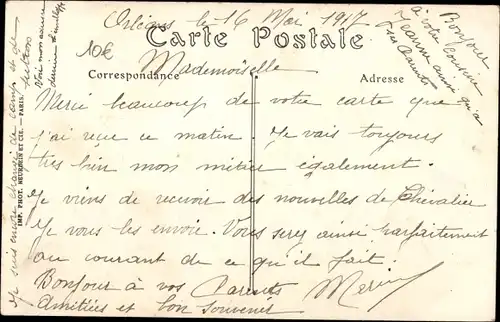 Orléans le 16 Mai 1917
10€
Carte Postale
Correspondance
Adresse
Mademoiselle
Merci beaucoup de votre carte que
j'ai reçue ce matin. Je vais toujours
très bien mon métier également.
Je viens de recevoir des nouvelles de Chevalier
Je vous les envoie. Vous serez ainsi parfaitement
au courant de ce qu'il fait.
Bonjour à vos Parents
amitiées et bon souvenir
Bonjour
à votre cousine
Jeanne ainsi qu'à
ses Parents
Je suis
changé de camp
Voir mon adresse
IMP. PHOT. NEURDEIN ET CIE. - PARIS